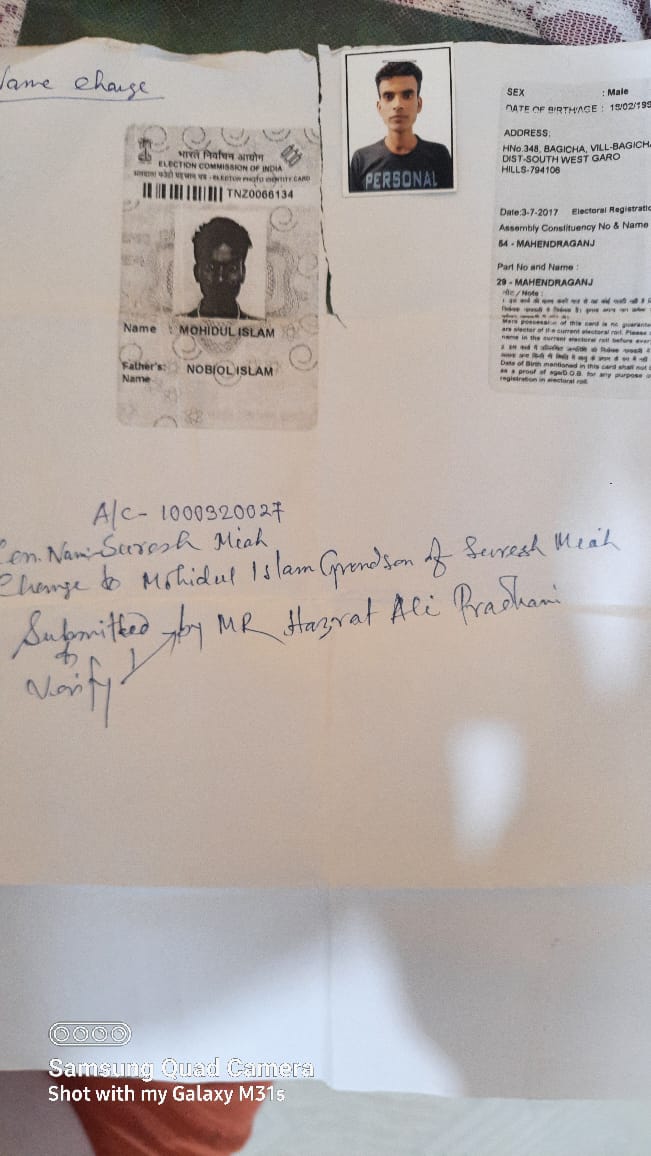 Name change
भारत निर्वाचन आयोग
ELECTION COMMISSION OF INDIA
ELECTOR PHOTO IDENTITY CARD
TNZ0066134
Name : MOHIDUL ISLAM
Father's Name : NOBIOL ISLAM
PERSONAL
SEX : Male
DATE OF BIRTH/AGE :
ADDRESS:
HNo.348, BAGICHA, VILL-BAGICHA
DIST-SOUTH WEST GARO
HILLS-794106
Date:3-7-2017 Electoral Registratio
Assembly Constituency No & Name
54 - MAHENDRAGANJ
Part No and Name :
29 - MAHENDRAGANJ
नोट / Note :
Mere possession of this card is no guarante
are elector of the current electoral roll. Please
name in the current electoral roll before ever
Date of Birth mentioned in this card shall not
as a proof of age/D.O.B. for any purpose
registration in electoral roll.
A/C- 1000320027
Con. Name- Suresh Miah
Change to Mohidul Islam Grandson of Suresh Miah
Submitted by MR Hazrat Ali Pradhani
to
Verify
Samsung Quad Camera
Shot with my Galaxy M31s